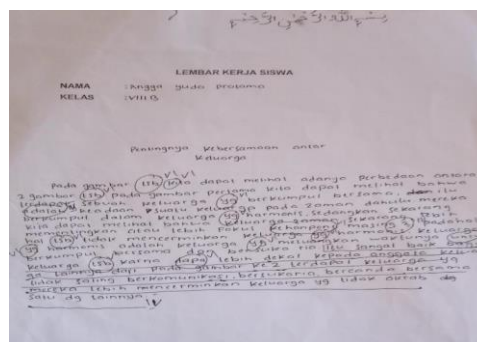 بسم الله الرحمن الرحيم
LEMBAR KERJA SISWA
NAMA : Angga yuda pratama
KELAS : VIII B
Pentingnya kebersamaan antar
keluarga
Pada gambar (tsb) kita dapat melihat adanya perbedaan antara
2 gambar (tsb) pada gambar pertama kita dapat melihat bahwa
terdapat sebuah keluarga yg berkumpul bersama, itu
adalah keadaan suatu keluarga pada zaman dahulu mereka
berkumpul dalam keluarga yg harmonis. Sedangkan sekarang
kita dapat melihat bahwa keluarga sekarang lebih
mementingkan atau lebih fokus kehanpon masing
hal (tsb) tidak mencerminkan keluarga yg harmonis keluarga
yg harmonis adalah keluarga yg meluangkan waktunya untuk
berkumpul bersama dan itu sangat baik bagi
keluarga (tsb) karna dapat lebih dekat kepada anggota keluarga
yg lainnya dari pada gambar ke 2 terdapat keluarga yg
tidak saling berkomunikasi bersukaria bercanda bersama
mereka lebih mencerminkan keluarga yg tidak akrab
satu dg lainnya